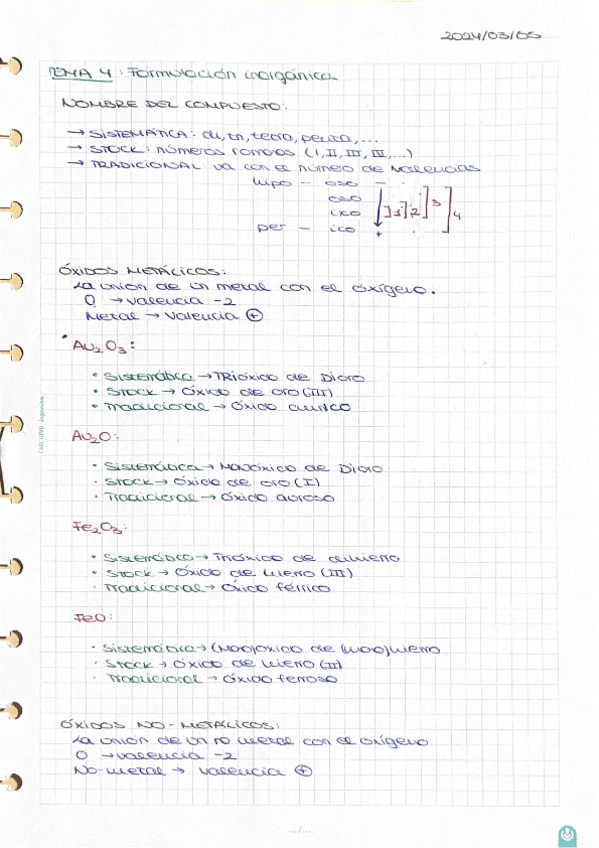 2024/03/05
TEMA 4: Formulación inorgánica
NOMBRE DEL COMPUESTO:
→ SISTEMÁTICA: di, tri, tetra, penta, ...
→ STOCK: números romanos (I, II, III, IV, ...)
→ TRADICIONAL va con el número de valencias
hipo - oso -
oso
ico ]1 ]2 ]3 ]4
per - ico +
ÓXIDOS METÁLICOS:
La unión de un metal con el oxígeno.
O → valencia -2
Metal → Valencia ⊕
• Au2O3:
• Sistemática → TRIóxido de Dioro
• Stock → Óxido de oro (III)
• Tradicional → Óxido aurico
Au2O:
• Sistemática → Monóxido de Dioro
• Stock → Óxido de oro (I)
• Tradicional → Óxido auroso
Fe2O3:
• Sistemático → Trióxido de dihierro
• Stock → Óxido de hierro (III)
• Tradicional → Óxido férrico
FeO:
• Sistemática → (Mono)oxido de (mono)hierro
• Stock → óxido de hierro (II)
• Tradicional → óxido ferroso
ÓXIDOS NO-METÁLICOS:
La unión de un no metal con el oxígeno
O → valencia -2
No-metal → valencia ⊕
.../...